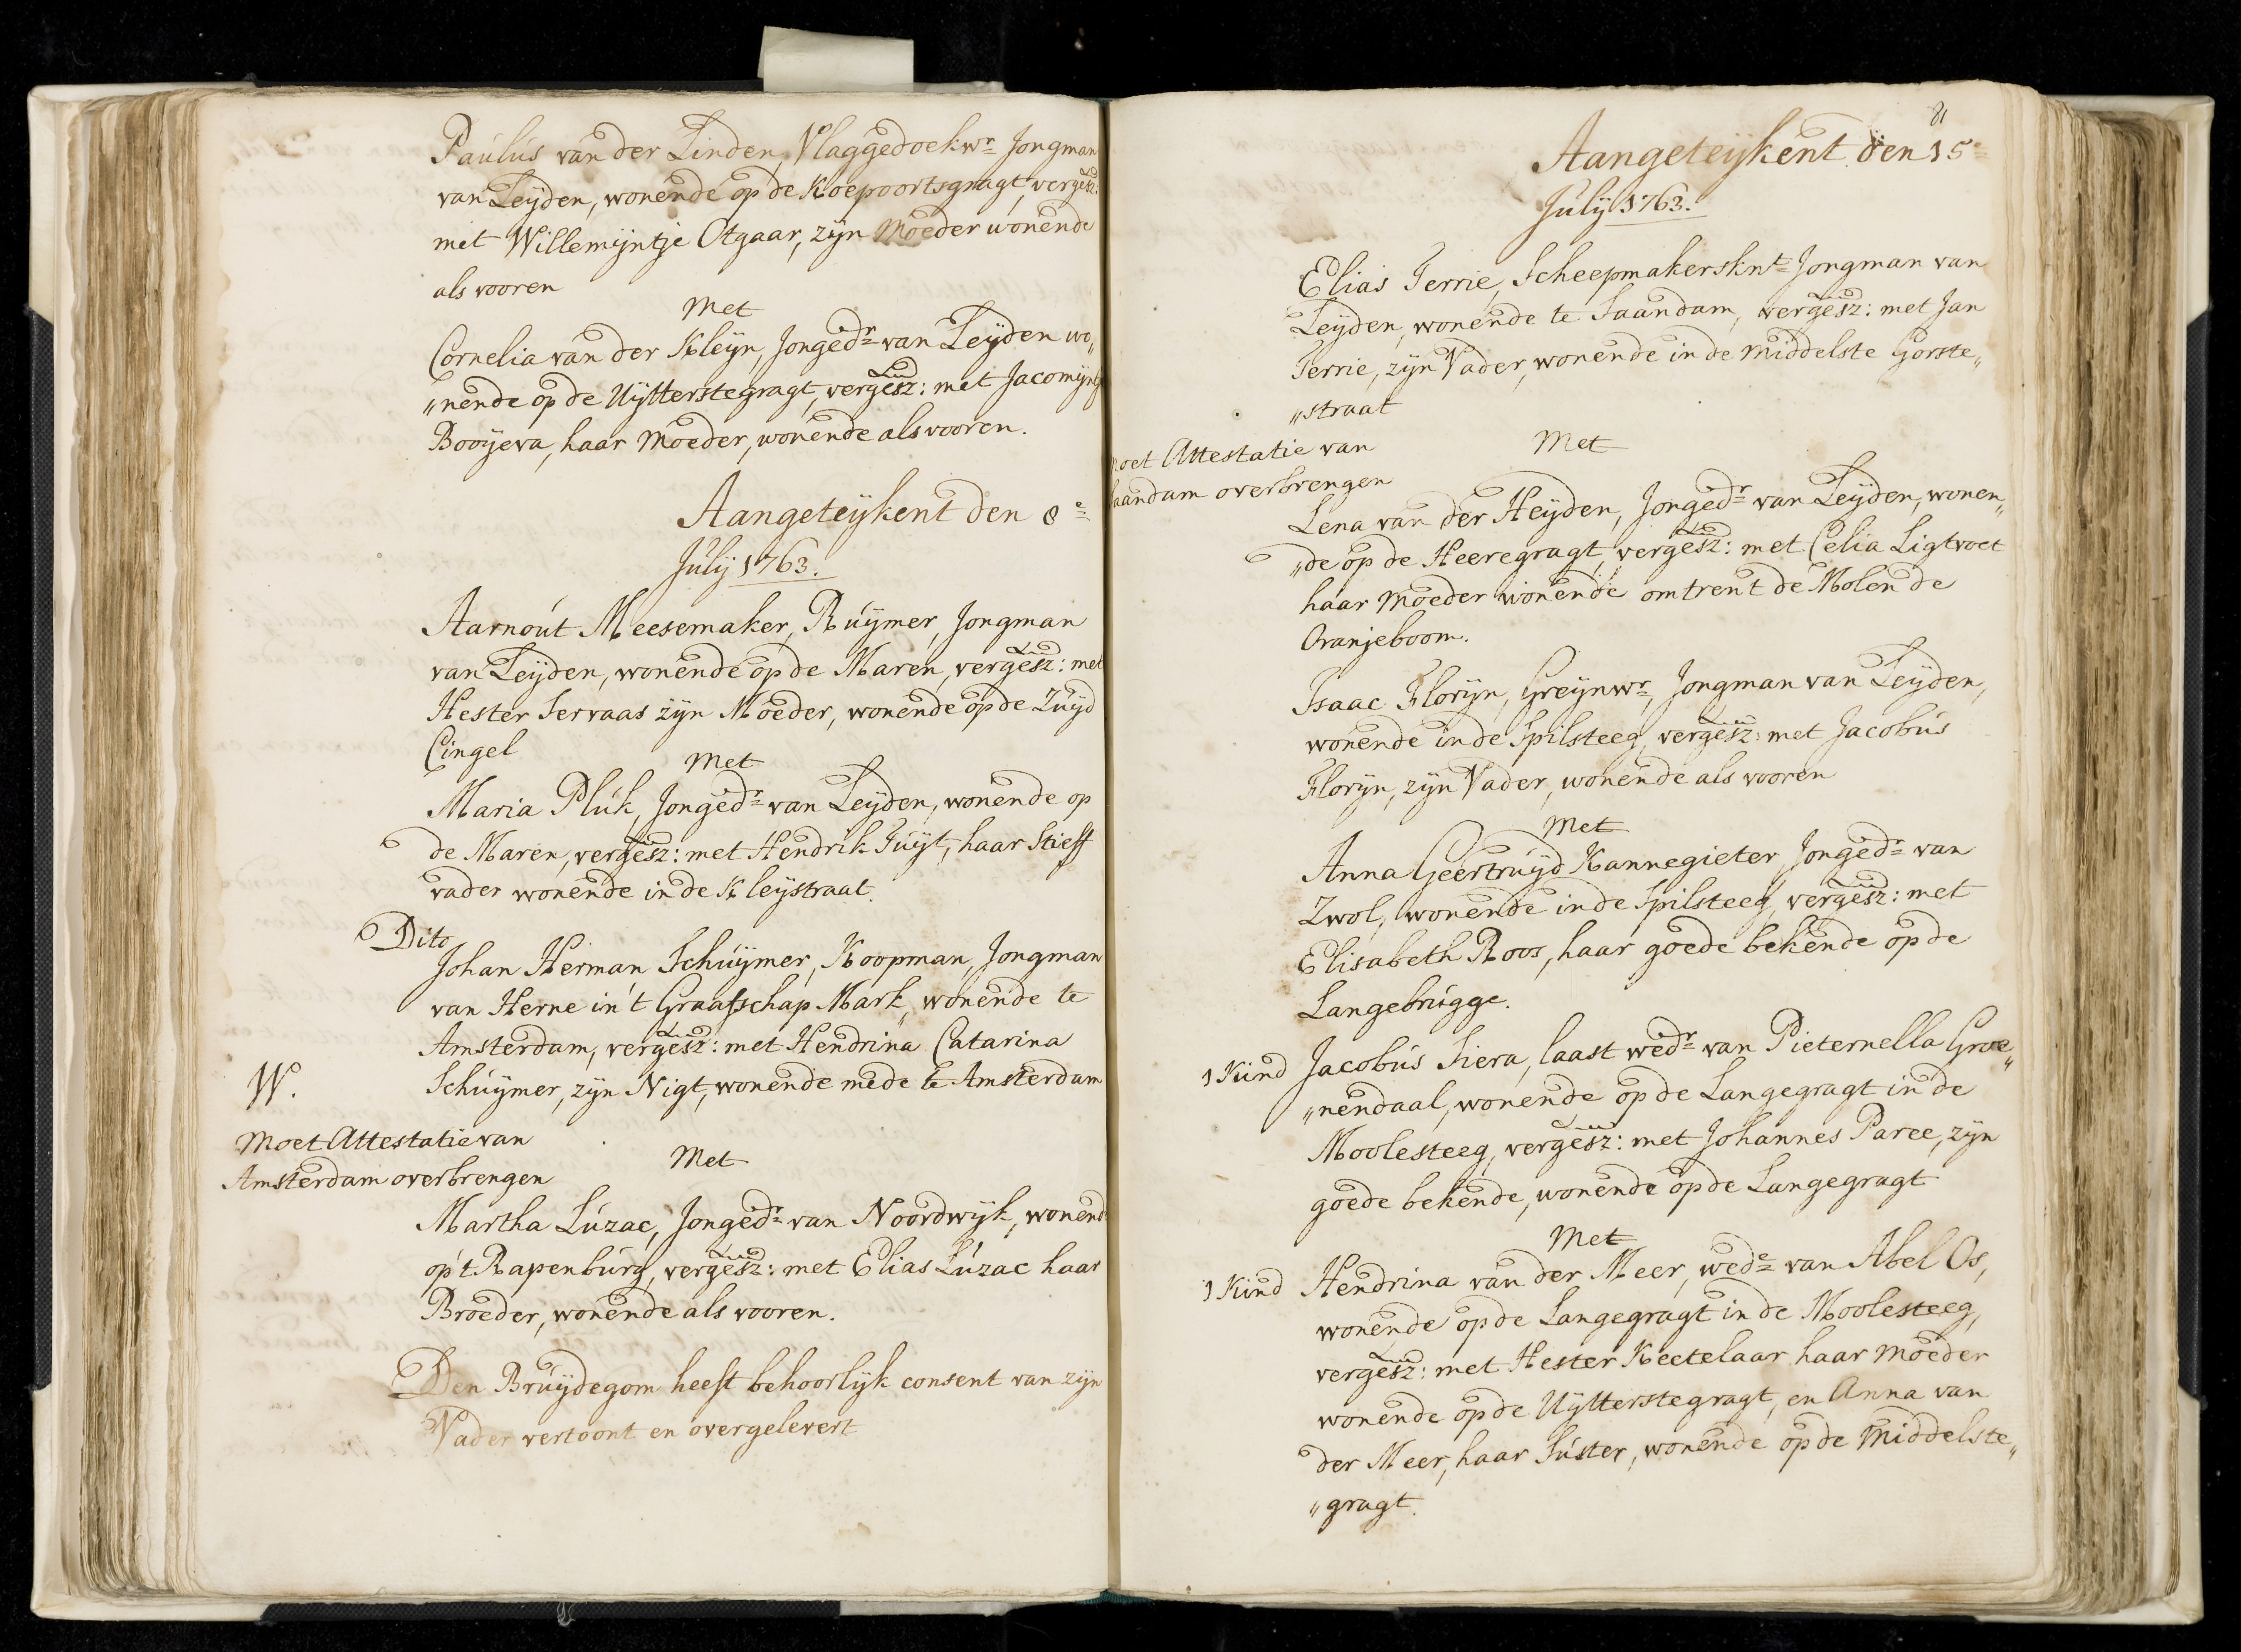 Paulus van der Linden, Vlaggedoekwr Jongman
van Leyden, wonende op de Koepoortsgragt, vergesz:
met Willemijntje Otgaar, zijn Moeder wonende
als vooren
Met
Cornelia van der Kleyn, Jongedr van Leyden wo„
„nende op de Uytterstegragt, vergesz: met Jacomijntje
Booyeva, haar Moeder, wonende als vooren.
Aangeteykent den 8e
July 1763.
Aarnout Meesemaker, Ruymer, Jongman
van Leyden, wonende op de Maren, vergesz: met
Hester Servaas zijn Moeder, wonende op de Zuyd
Cingel
Met
Maria Pluk, Jongedr van Leyden, wonende op
de Maren, vergesz: met Hendrik Tuyt, haar Stieff
vader wonende in de Kleystraat.
Dito
Johan Herman Schuymer, Koopman, Jongman
van Herne in't Graafschap Mark, wonende te
Amsterdam, vergesz: met Hendrina Catarina
W. Schuymer, zijn Nigt, wonende mede te Amsterdam
Moet Attestatie van
Amsterdam overbrengen
Met
Martha Luzac, Jongedr van Noordwijk, wonend
op't Rapenburg, vergesz: met Elias Luzac haar
Broeder, wonende als vooren.
Den Bruydegom heeft behoorlijk consent van zijn
Vader vertoont en overgelevert
81
Aangeteykent den 15e
July 1763.
Elias Terrie, Scheepmakersknt Jongman van
Leyden, wonende te Saandam, vergesz: met Jan
Terrie, zijn Vader, wonende in de middelste Gorste„
„straat
Met
moet Attestatie van
Saandam overbrengen
Lena van der Heyden, Jongedr van Leyden, wonen„
„de op de Heeregragt, vergesz: met Celia Ligtvoet
haar Moeder wonende omtrent de Molen de
Oranjeboom.
Isaac Florijn, Greynwr, Jongman van Leyden,
wonende in de Spilsteeg, vergesz: met Jacobus
Florijn, zijn Vader, wonende als vooren
Met
Anna Geertruyd Kannegieter, Jongedr van
Zwol, wonende in de Spilsteeg, vergesz: met
Elisabeth Roos, haar goede bekende op de
Langebrugge.
1 Kind Jacobus Siera, laast wedr van Pieternella Groe„
„nendaal, wonende op de Langegragt in de
Moolesteeg, vergesz: met Johannes Paree, zijn
goede bekende, wonende op de Langegragt
Met
1 Kind Hendrina van der Meer, wede van Abel Os,
wonende op de Langegragt in de Moolesteeg,
vergesz: met Hester Keetelaar haar Moeder
wonende op de Uytterstegragt, en Anna van
der Meer, haar Suster, wonende op de Middelste„
„gragt.